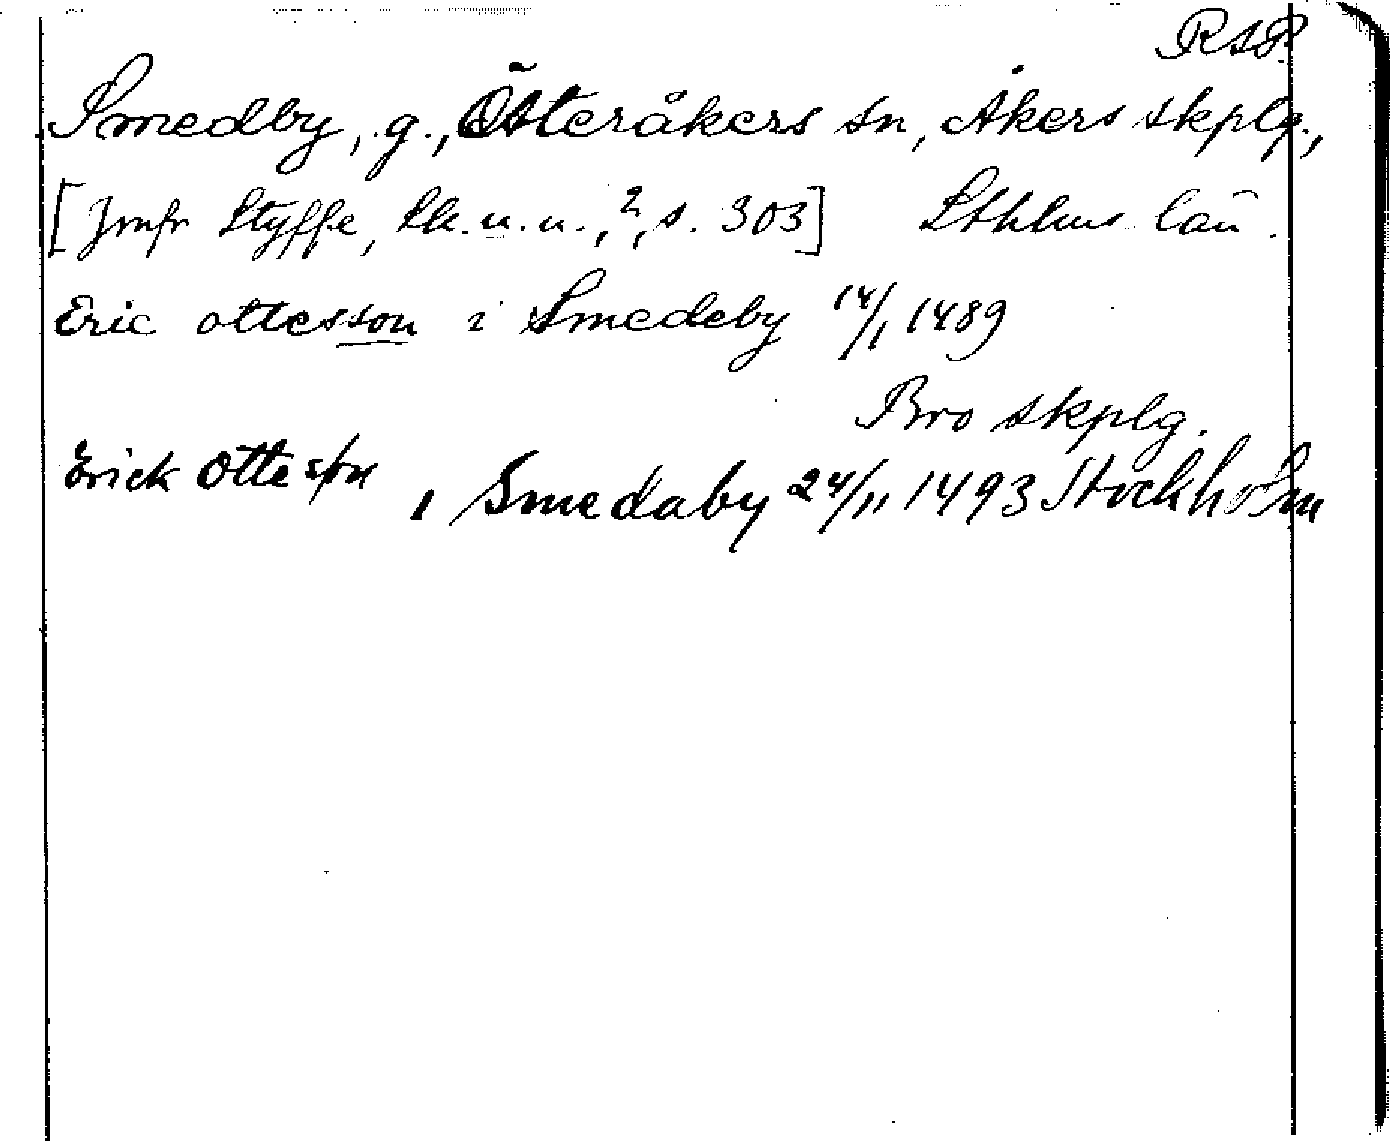 RAP.
Smedby, g., Österåkers sn, Åkers skplg.,
[Jmfr Styffe, Sk. u. u., 2, s. 303] Sthlms län.
Eric ottesson i Smedeby 14/1 1489
Bro skplg.
Erick Otte son, Smedaby 24/11 1493 Stockholm